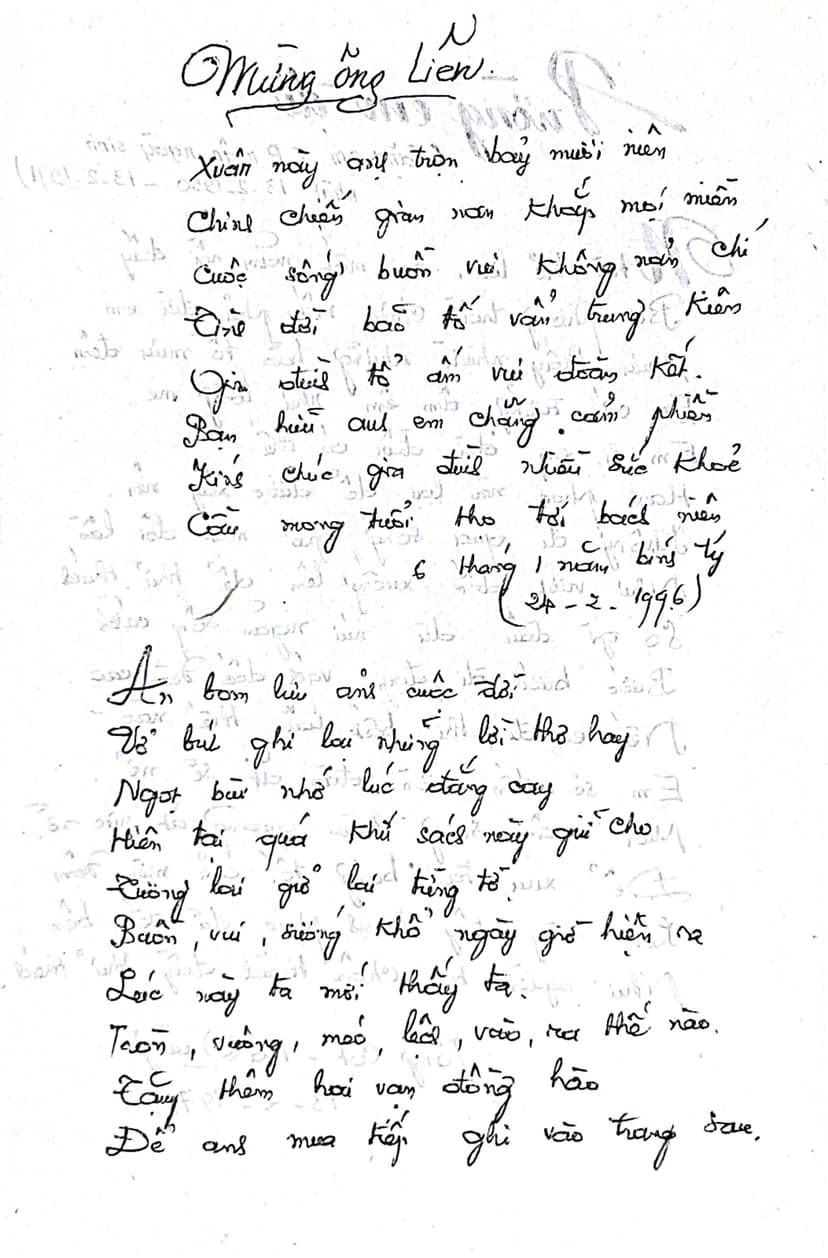 Mừng ông Liễn.
Xuân này anh trọn bảy mươi niên
Chinh chiến gian nan khắp mọi miền
Cuộc sống buồn vui không nản chí
Tình đời bão tố vẫn trung kiên
Gia đình tổ ấm vui đoàn kết.
Bạn hữu anh em chẳng cảm phiền
Kính chúc gia đình nhiều sức khoẻ
Cầu mong tuổi thọ tới bách niên
6 tháng 1 năm bính tý
(24-2-1996)
An bom lưu ảnh cuộc đời
Vở bút ghi lại những lời thơ hay
Ngọt bùi nhớ lúc đắng cay
Hiện tại quá khứ sách này giữ cho
Tương lai giở lại từng tờ.
Buồn, vui, sướng khổ ngày giờ hiện ra
Lúc này ta mới thấy ta.
Tròn, vuông, méo, lệch, vào, ra thế nào.
Tặng thêm hai vạn đồng hào
Để anh mua tiếp ghi vào trang sau.